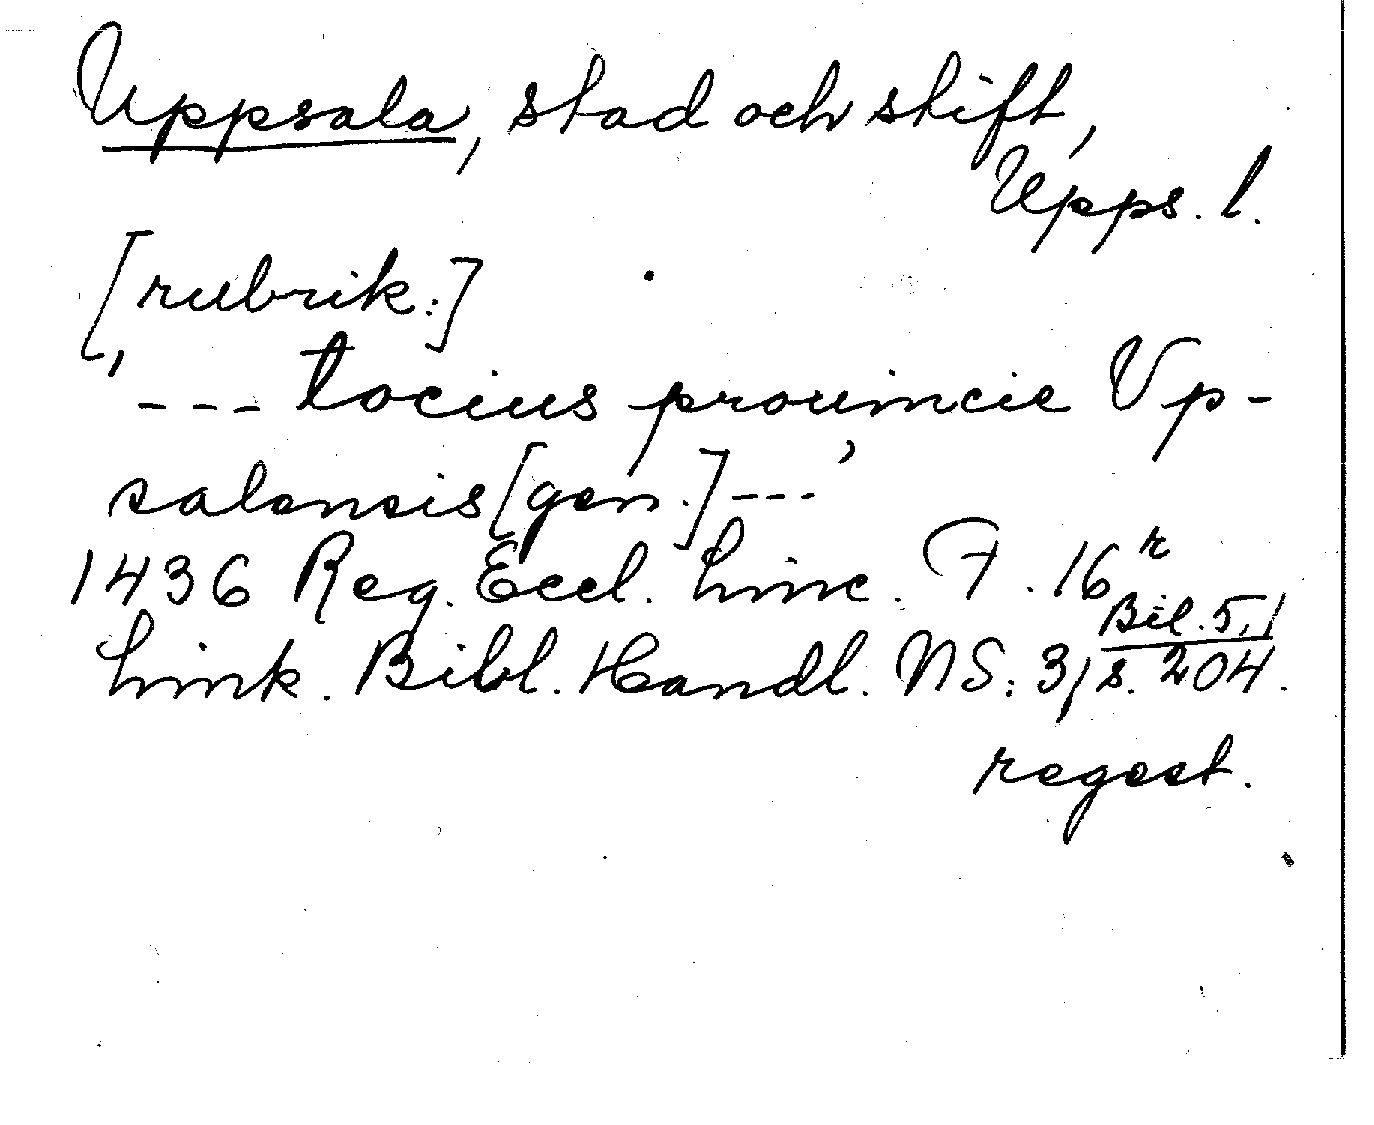 Uppsala, stad och stift,
Upps. l.
[rubrik:]
' --- tocius prouincie Vp-
salensis [gen.] --- '
1436 Reg. Eccl. Linc. F. 16r
Bil. 5,1
Link. Bibl. Handl. NS: 3, s. 204.
regest.